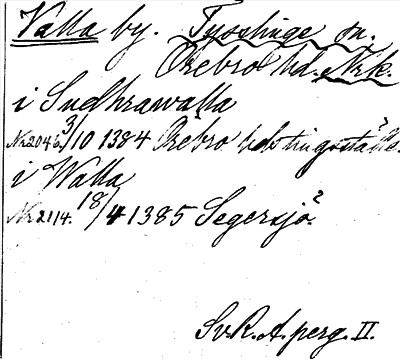 Valla by. Tysslinge sn.
Örebro hd. Nrk.
i Sudhrawalla
Nr. 2046. 3/10 1384 Örebro hds tingsställe.
i Walla
Nr. 2114. 18/4 1385 Segersjö.
Sv. R. A. perg. II.